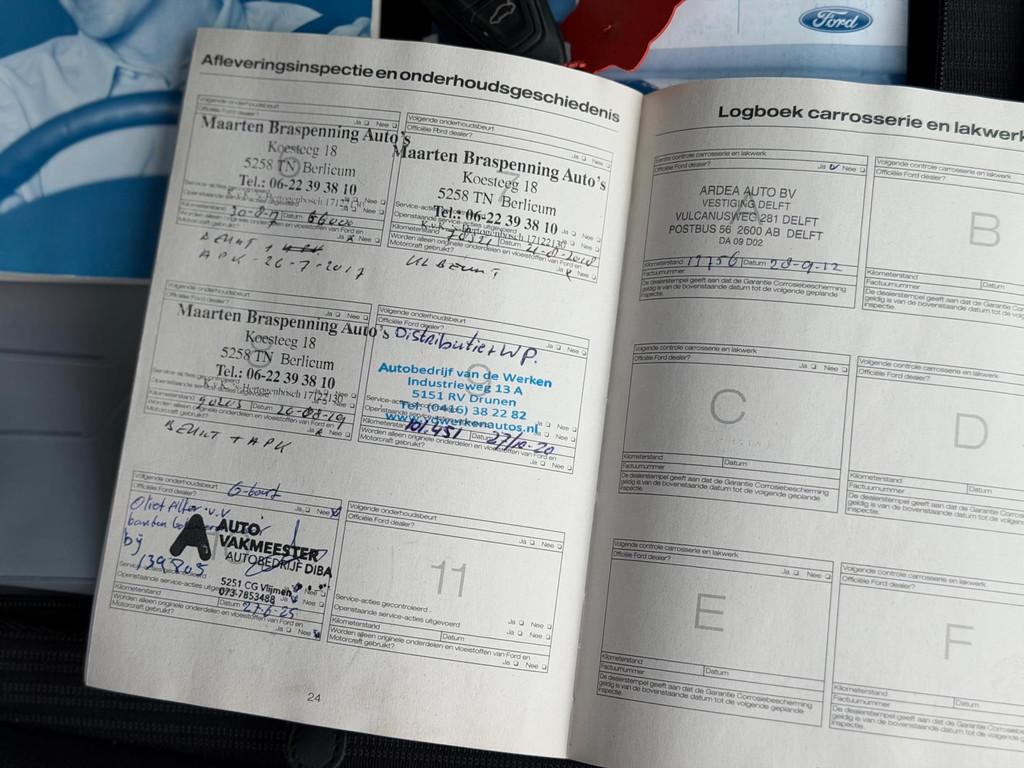 Ford
Afleveringsinspectie en onderhoudsgeschiedenis
Volgende onderhoudsbeurt
Officiële Ford dealer? Ja Nee
Maarten Braspenning Auto's
Koesteeg 18
5258 TN Berlicum
Tel.: 06-22 39 38 10
K.v.K. 's-Hertogenbosch 17122130
30-8-17 Datum
BEURT
APK-26-7-2017
Volgende onderhoudsbeurt
Officiële Ford dealer? Ja Nee
Maarten Braspenning Auto's
Koesteeg 18
5258 TN Berlicum
Tel.: 06-22 39 38 10
K.v.K. 's-Hertogenbosch 17122130
Kilometerstand Datum
Worden alleen originele onderdelen en vloeistoffen van Ford en
Motorcraft gebruikt? Ja Nee
KL BEURT
Volgende onderhoudsbeurt
Officiële Ford dealer? Ja Nee
Maarten Braspenning Auto's
Koesteeg 18
5258 TN Berlicum
Tel.: 06-22 39 38 10
K.v.K. 's-Hertogenbosch 17122130
Kilometerstand Datum 26-08-19
Worden alleen originele onderdelen en vloeistoffen van Ford en
Motorcraft gebruikt? Ja Nee
BEURT + APK
Volgende onderhoudsbeurt
Officiële Ford dealer? Ja Nee
Distributie + WP.
9
Autobedrijf van de Werken
Industrieweg 13 A
5151 RV Drunen
Tel: (0416) 38 22 82
www.vdwerkenautos.nl
Kilometerstand 101.451 Datum 27/10-20
Worden alleen originele onderdelen en vloeistoffen van Ford en
Motorcraft gebruikt? Ja Nee
Volgende onderhoudsbeurt G-beurt
Officiële Ford dealer? Ja Nee
bij
139805
AUTO
VAKMEESTER
AUTOBEDRIJF DIBA
5251 CG Vlijmen
073-7853488
Kilometerstand Datum 27-6-25
Worden alleen originele onderdelen en vloeistoffen van Ford en
Motorcraft gebruikt? Ja Nee
Volgende onderhoudsbeurt
Officiële Ford dealer? Ja Nee
11
Service-acties gecontroleerd
Openstaande service-acties uitgevoerd Ja Nee
Kilometerstand Datum Ja Nee
Worden alleen originele onderdelen en vloeistoffen van Ford en
Motorcraft gebruikt? Ja Nee
24
Logboek carrosserie en lakwerk
Eerste controle carrosserie en lakwerk
Officiële Ford dealer? Ja Nee
A
ARDEA AUTO BV
VESTIGING DELFT
VULCANUSWEG 281 DELFT
POSTBUS 56 2600 AB DELFT
DA 09 D02
Kilometerstand 17756 Datum 28-9-12
Factuurnummer
De dealerstempel geeft aan dat de Garantie Corrosiebescherming
geldig is van de bovenstaande datum tot de volgende geplande
inspectie.
Volgende controle carrosserie en lakwerk
Officiële Ford dealer?
B
Kilometerstand
Factuurnummer
De dealerstempel geeft aan dat de Garantie
geldig is van de bovenstaande datum tot de
inspectie.
Volgende controle carrosserie en lakwerk
Officiële Ford dealer? Ja Nee
C
Kilometerstand Datum
Factuurnummer
De dealerstempel geeft aan dat de Garantie Corrosiebescherming
geldig is van de bovenstaande datum tot de volgende geplande
inspectie.
Volgende controle carrosserie en lakwerk
Officiële Ford dealer?
D
Kilometerstand Datum
Factuurnummer
De dealerstempel geeft aan dat de Garantie
geldig is van de bovenstaande datum tot de
inspectie.
Volgende controle carrosserie en lakwerk
Officiële Ford dealer? Ja Nee
E
Kilometerstand Datum
Factuurnummer
De dealerstempel geeft aan dat de Garantie Corrosiebescherming
geldig is van de bovenstaande datum tot de volgende geplande
inspectie.
Volgende controle carrosserie en lakwerk
Officiële Ford dealer?
F
Kilometerstand Datum
Factuurnummer
De dealerstempel geeft aan dat de Garantie
geldig is van de bovenstaande datum tot de
inspectie.